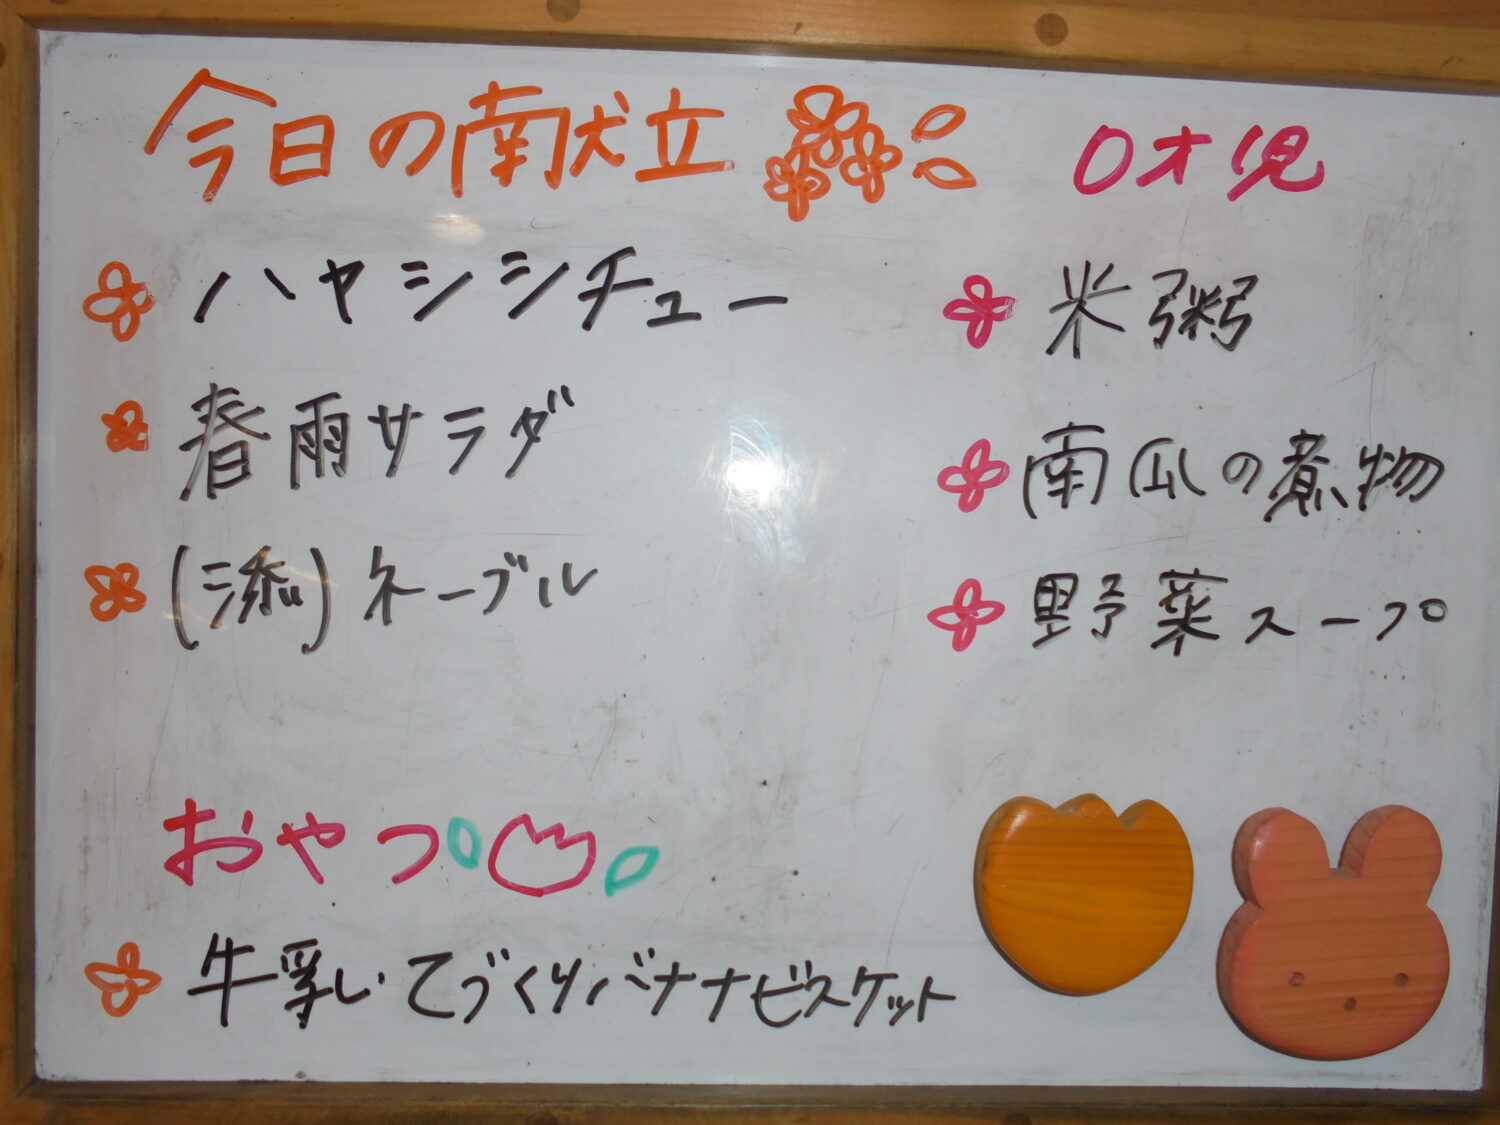 今日の献立
ハヤシシチュー
春雨サラダ
(添)ネーブル
おやつ
牛乳 てづくりバナナビスケット
0才児
米粥
南瓜の煮物
野菜スープ